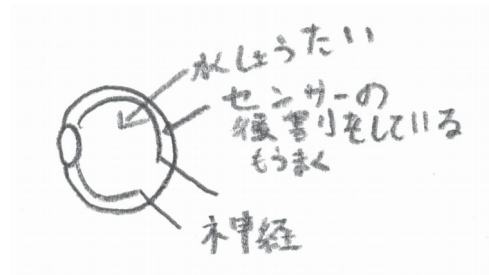 水しょうたい
センサーの
役割りをしている
もうまく
神経